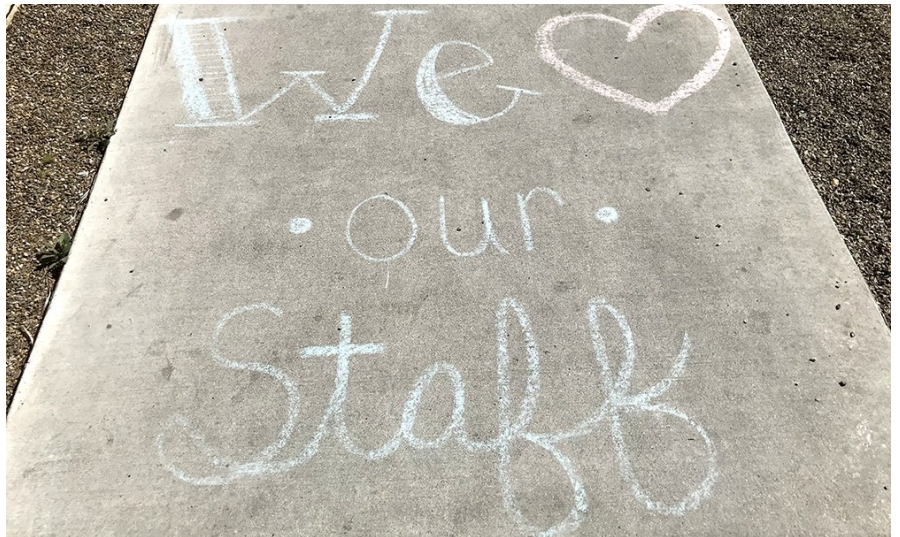 We ♡
• our •
Staff